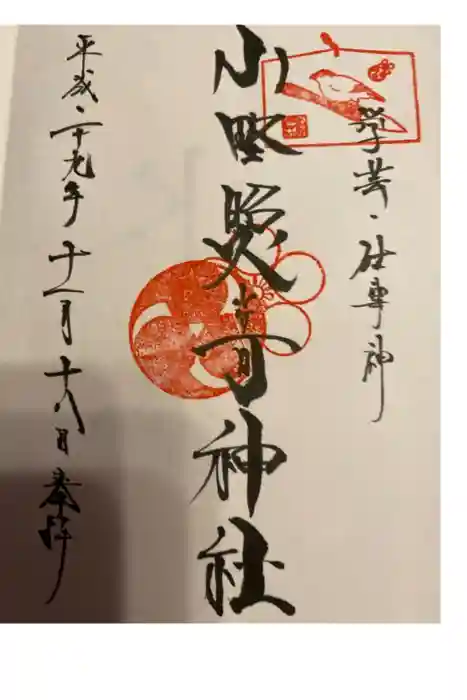 学芸・仕事神
小野照崎神社
平成・二十九年十一月十八日奉拝